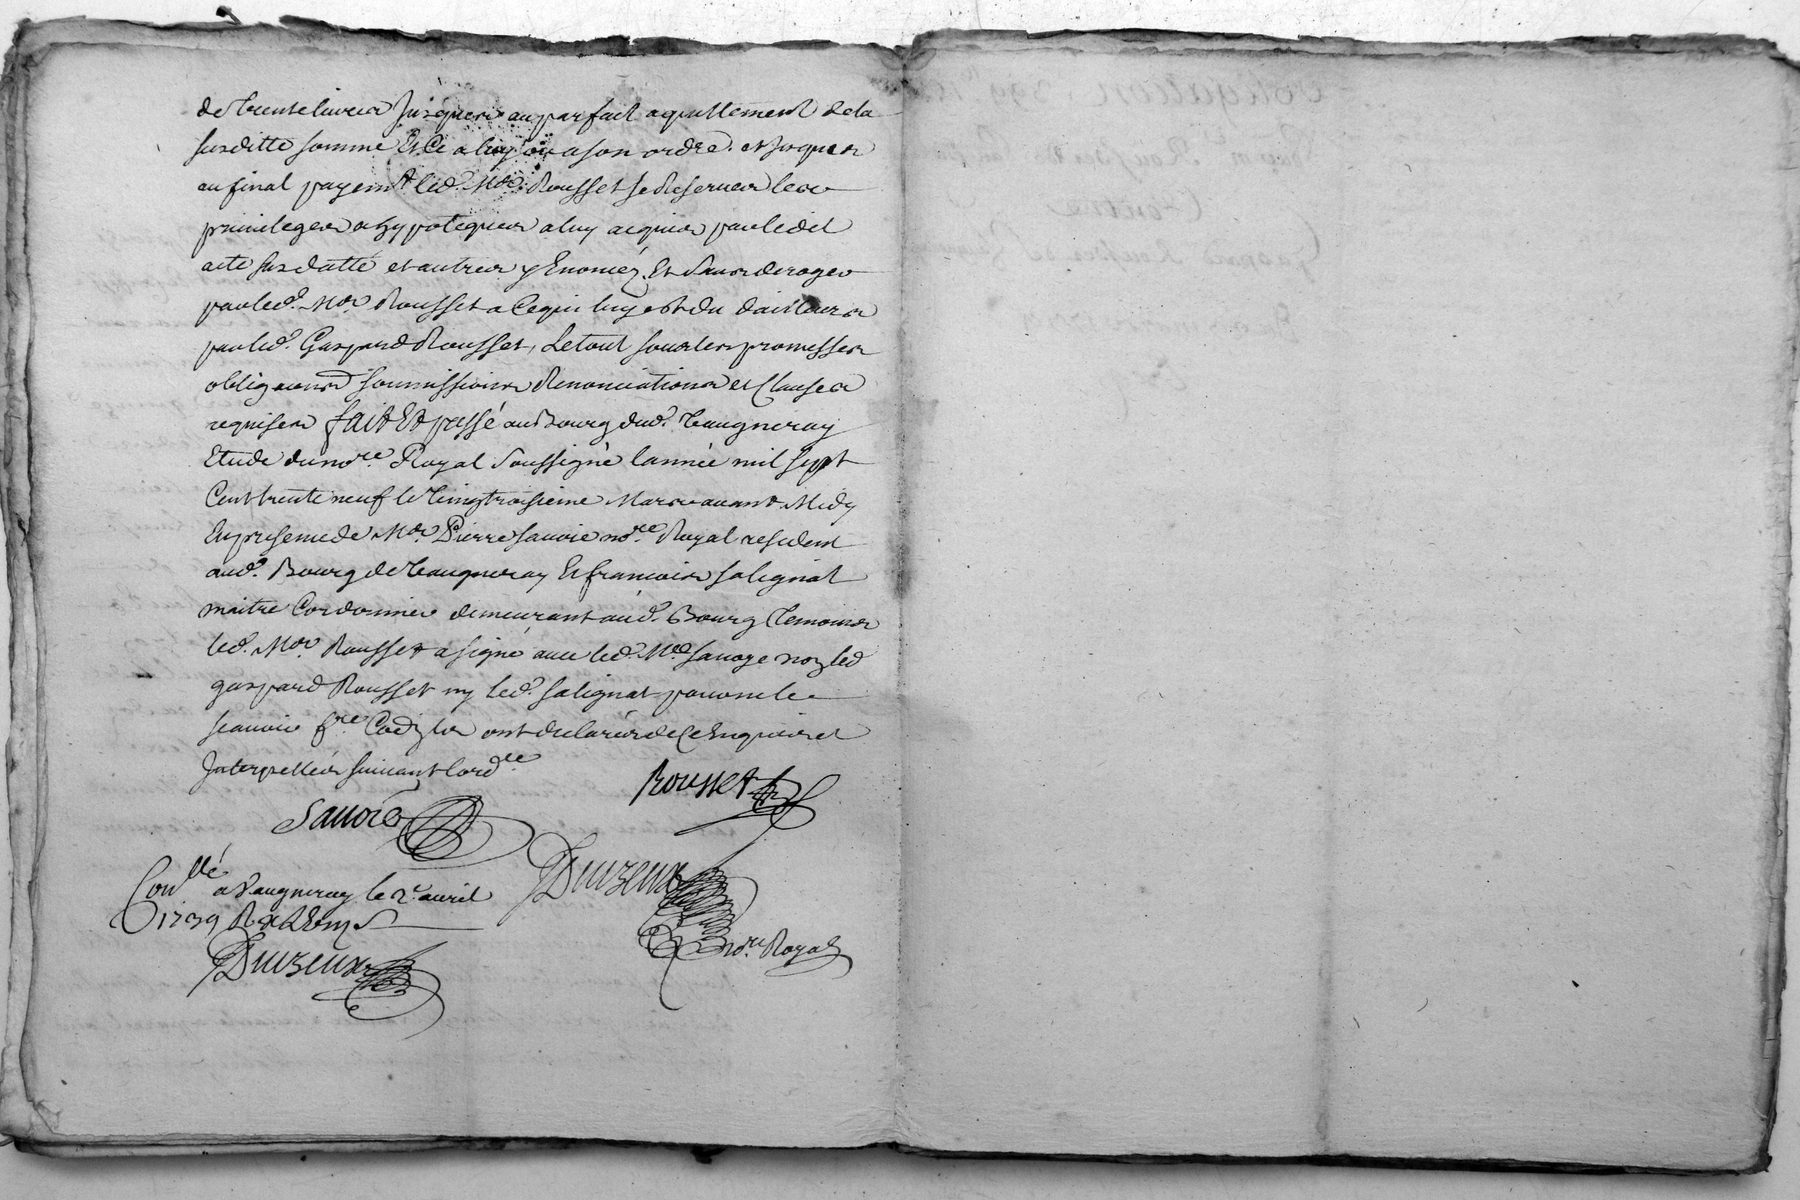 de trente livres jusques au parfait aquittement dela
susditte somme Et Ce a luy ou a son ordre. et jusques
au final payem.t led. M.re Rousset se Reservear les
privileges et hypoteques a luy acquis par ledit
acte susdatté et autres y Enoncéz. Et sans deroger
par led. M.re Rousset a Cequi luy est du dailleurs
par led. Gaspard Rousset, Le tout sous les promesses
obligaons soumissions Renonciations et Clauses
requises fait Et passé au Bourg dud. Vaugneray
Etude du no.re Royal Soussigné lannée mil sept
Cent trente neuf le Vingtroisieme Mars avant Midy
En presence de M.re Pierre Savoie no.re Royal resident
aud. Bourg de Vaugneray Et francois salignat
maitre Cordonnier demeurant aud. Bourg Temoins
led. M.re Rousset a signé avec led. M.re Savoye non led
gaspard Rousset ny led. salignat pour ne le
scavoir f.re Cody les ont declarés de Ce Enquis et
Interpellés suivant lord.ce
Rousset
Savoie
Con.llé a Vaugneray le 2.e avril
1739 R
Duizeux
no.re Royal
Duizeux